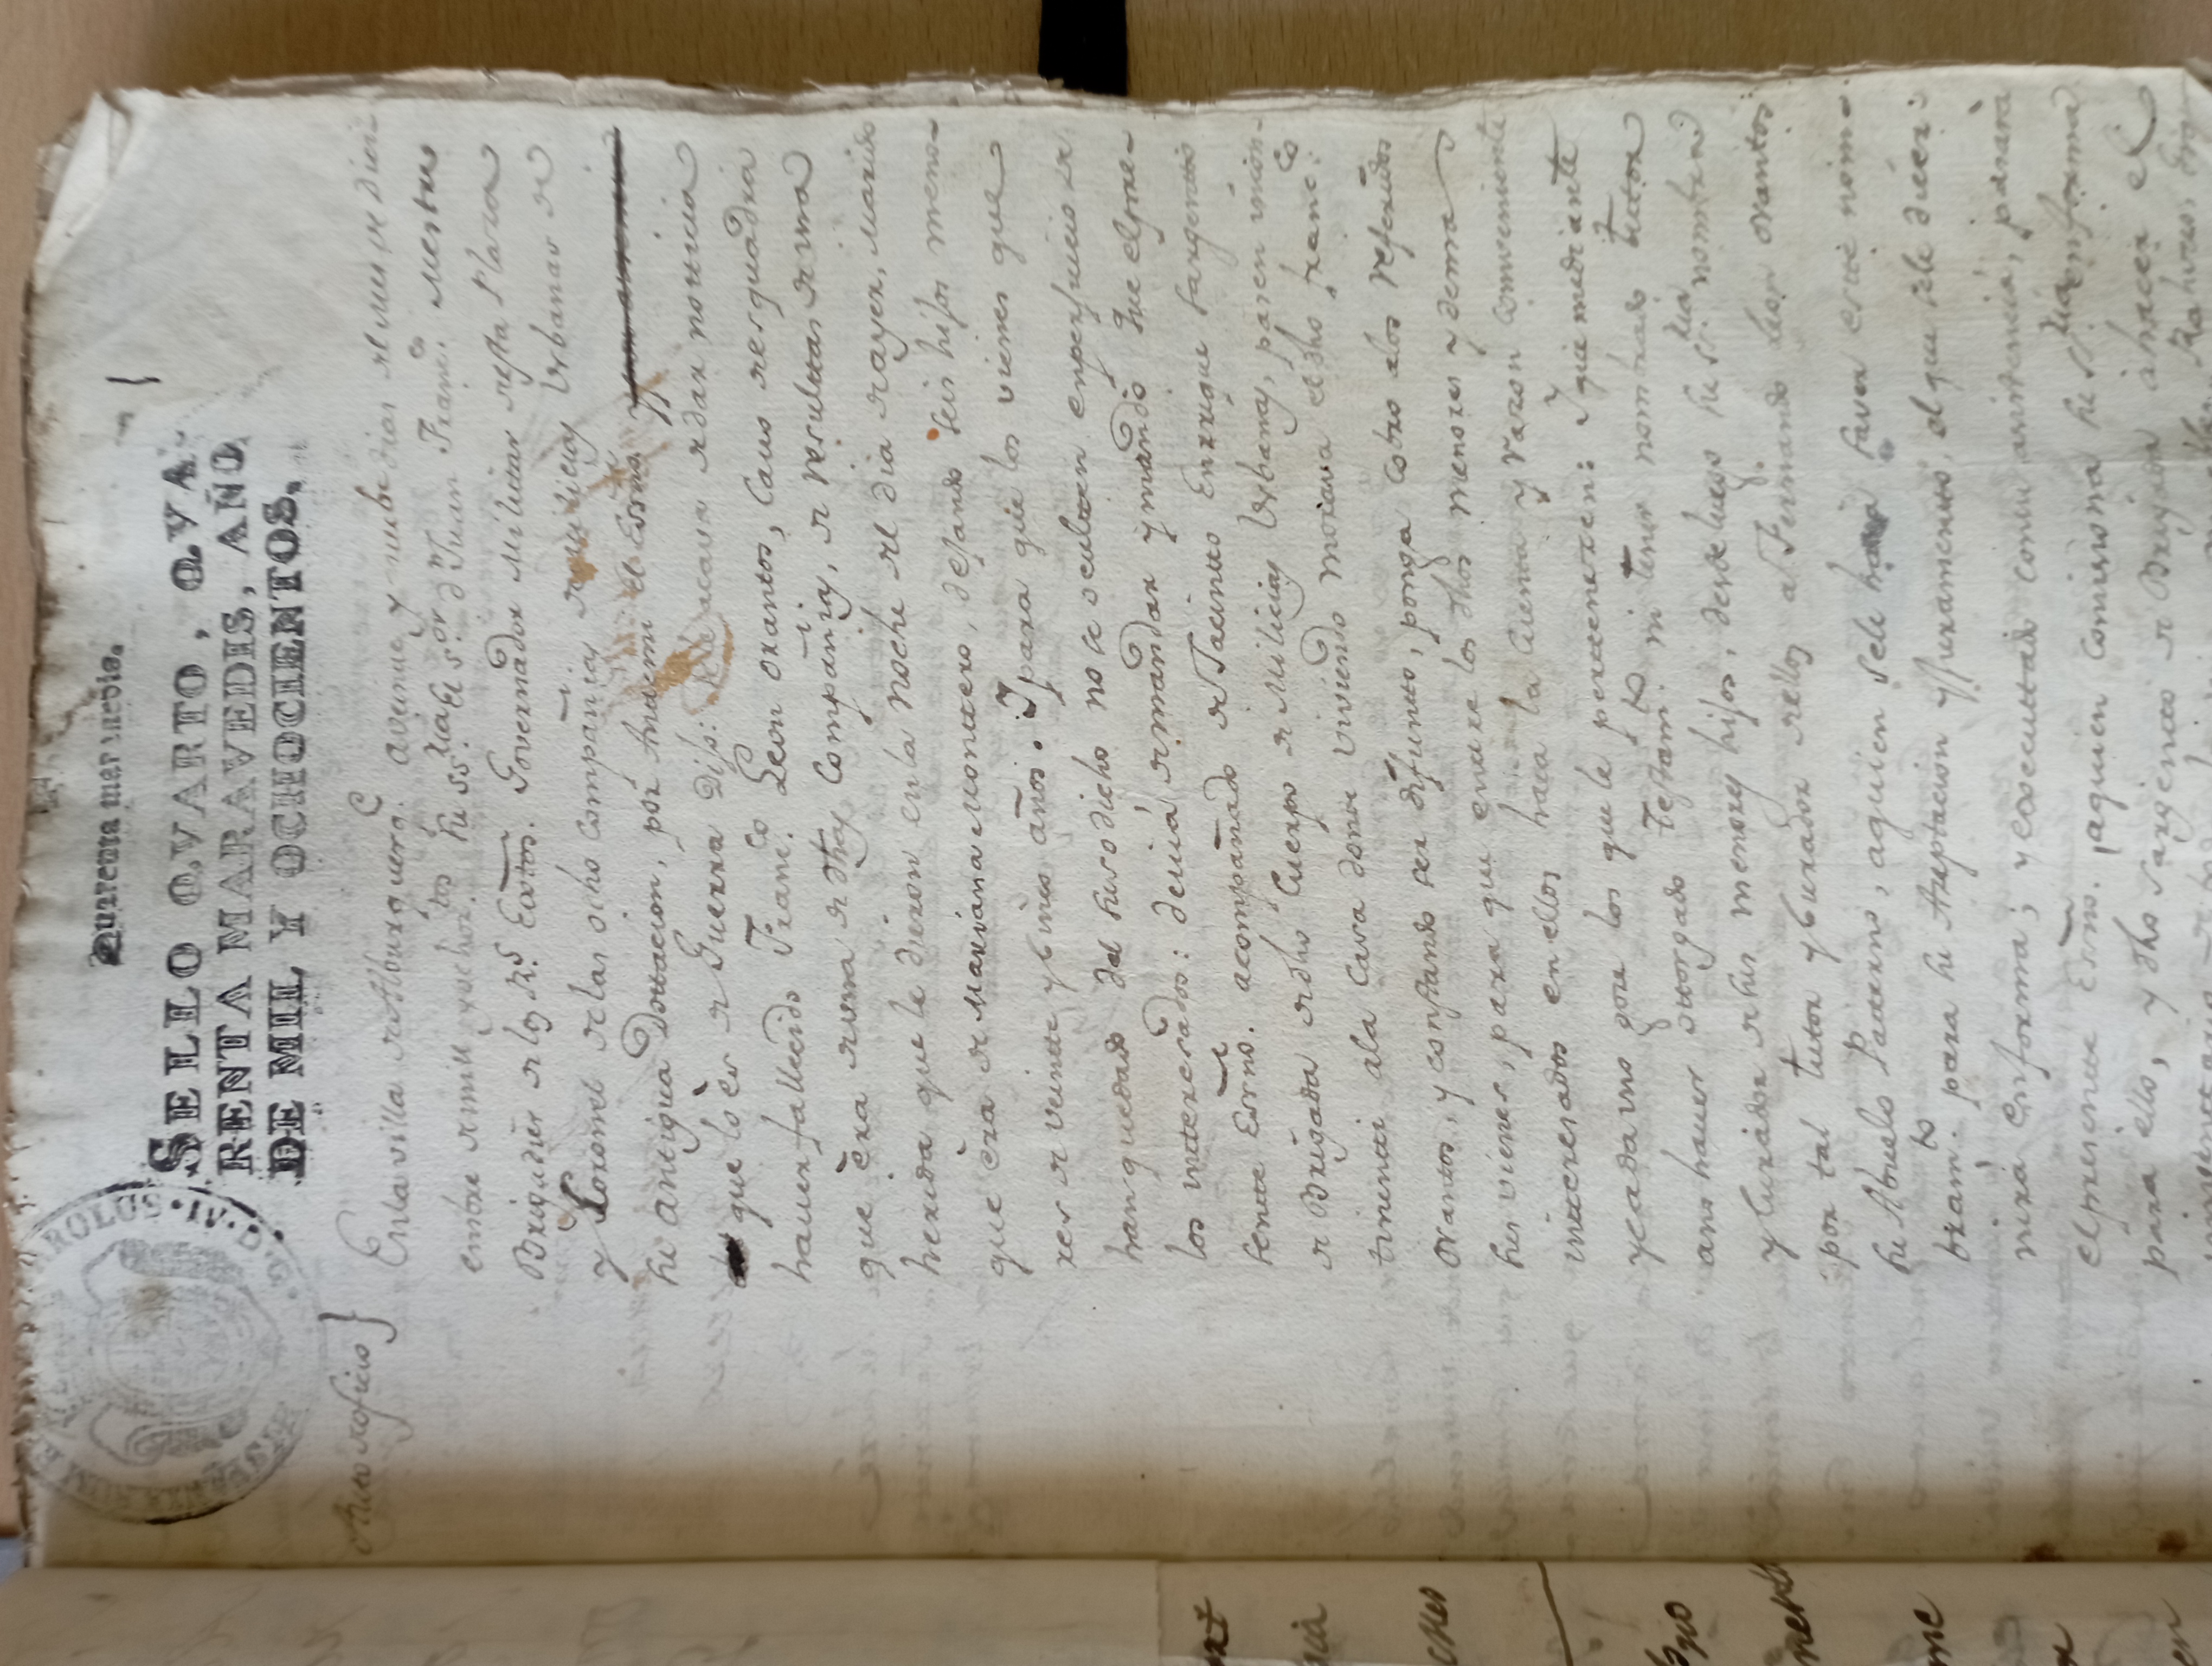 Quarenta maravedis.
SELLO QVARTO, QVA-
RENTA MARAVEDIS, AÑO
DE MIL Y OCHOCIENTOS.
Auto de oficio}
En la villa de Alburquerq.e a veinte y nuebe dias del mes de Dici-
embre de mill y ochoz.tos su ss.ria el s.or d.n Juan Franc.co Mestre
Brigadier de los R.s Extos. Governador Militar desta Plaza
y Coronel de las ocho compañias de milicias Urbanas de
su antigua Dottacion, por Antemi el Essño.
que lo és de Guerra Dijo: Se le acava de dar notticia
haver fallecido Franc.co Leon orantos, Cavo de esquadra
que éra de una de dhas Compañias, de resulttas de una
herida que le dieron en la noche del dia de ayer, Marido
que éra de Mariana Monttero, dejando seis hijos meno-
res de veintte y cinco años. Y para que los vienes que
han quedado del susodicho no se oculten en perjuicio de
los intteresados: devia de mandar y mandó que el pre-
sentte Essño. acompañado de Jacintto Enrrique sargentto
de Brigada de dho Cuerpo de Milicias Urbanas, pasen incon-
tinentti a la Casa donde viviendo morava el dho franc.co
Orantos, y constando ser difuntto, ponga cobro a los referidos
sus vienes, para que enttre los dhos menores y dema
intteresados en ellos haia la Cuenta y razon comveniente
y cada uno goze los que le perttenezcan: Y que mediante
a no haver ottorgado Testam.to ni tener nombrado tutor
y Curador de sus menores hijos, desde luego su ss.ria nombra
por tal tutor y Curador dellos a Fernando Leon orantos
su Abuelo Patterno, a quien se le hará saver estte nom-
bram.to para su Azeptacion y juramentto, el que se le dicer-
nirá en forma; y executtado con su asistencia, pasará
el presentte Essño., a quien comisiona su ss.ria en forma
para ello, y dho sargentto de Brigada á hacer el